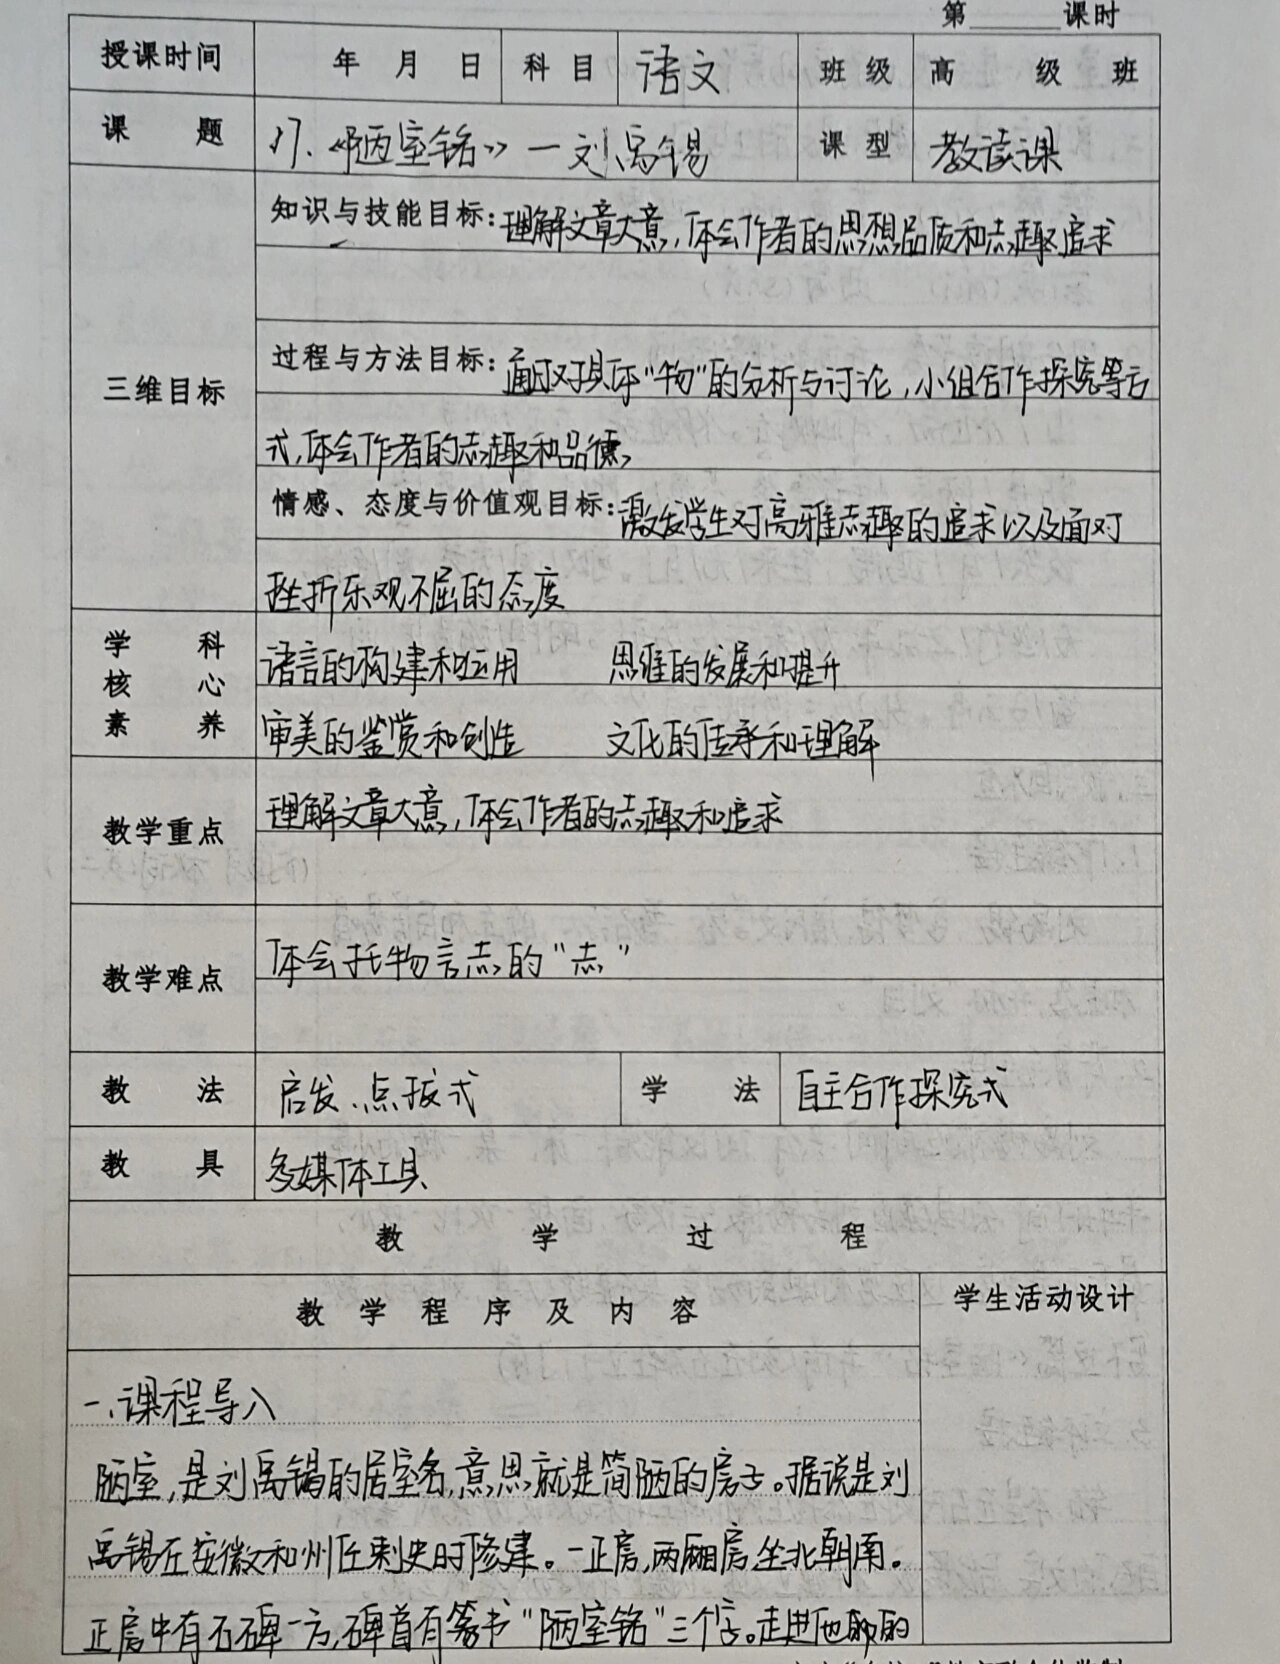 第______课时
授课时间 年 月 日 科目 语文 班级 高 级 班
课题 17.《陋室铭》—刘禹锡 课型 教读课
三维目标
知识与技能目标：理解文章大意，体会作者的思想品质和志趣追求
过程与方法目标：通过对具体“物”的分析与讨论，小组合作探究等方
式，体会作者的志趣和品德。
情感、态度与价值观目标：激发学生对高雅志趣的追求以及面对
挫折乐观不屈的态度
学科
核心
素养
语言的构建和运用 思维的发展和提升
审美的鉴赏和创造 文化的传承和理解
教学重点 理解文章大意，体会作者的志趣和追求
教学难点 体会托物言志的“志”
教法 启发、点拨式 学法 自主合作探究式
教具 多媒体工具
教学过程
教学程序及内容 学生活动设计
一、课程导入
陋室，是刘禹锡的居室名，意思就是简陋的房子。据说是刘
禹锡在安徽和州任刺史时修建。一正房，两厢房，坐北朝南。
正房中有石碑一方，碑首有篆书“陋室铭”三个字。走进他的